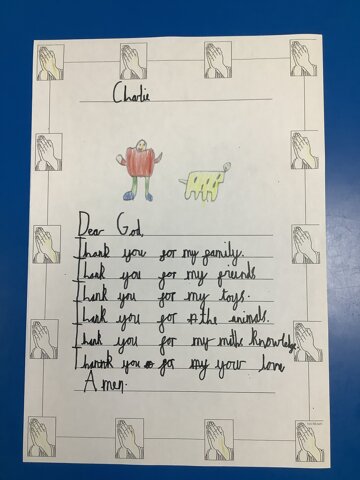 Charlie
Dear God,
Thank you for my family.
Thank you for my freinds
Thank you for my toys.
Thank you for the animals.
Thank you for my maths knowledge
Thannk you for my your love
Amen.